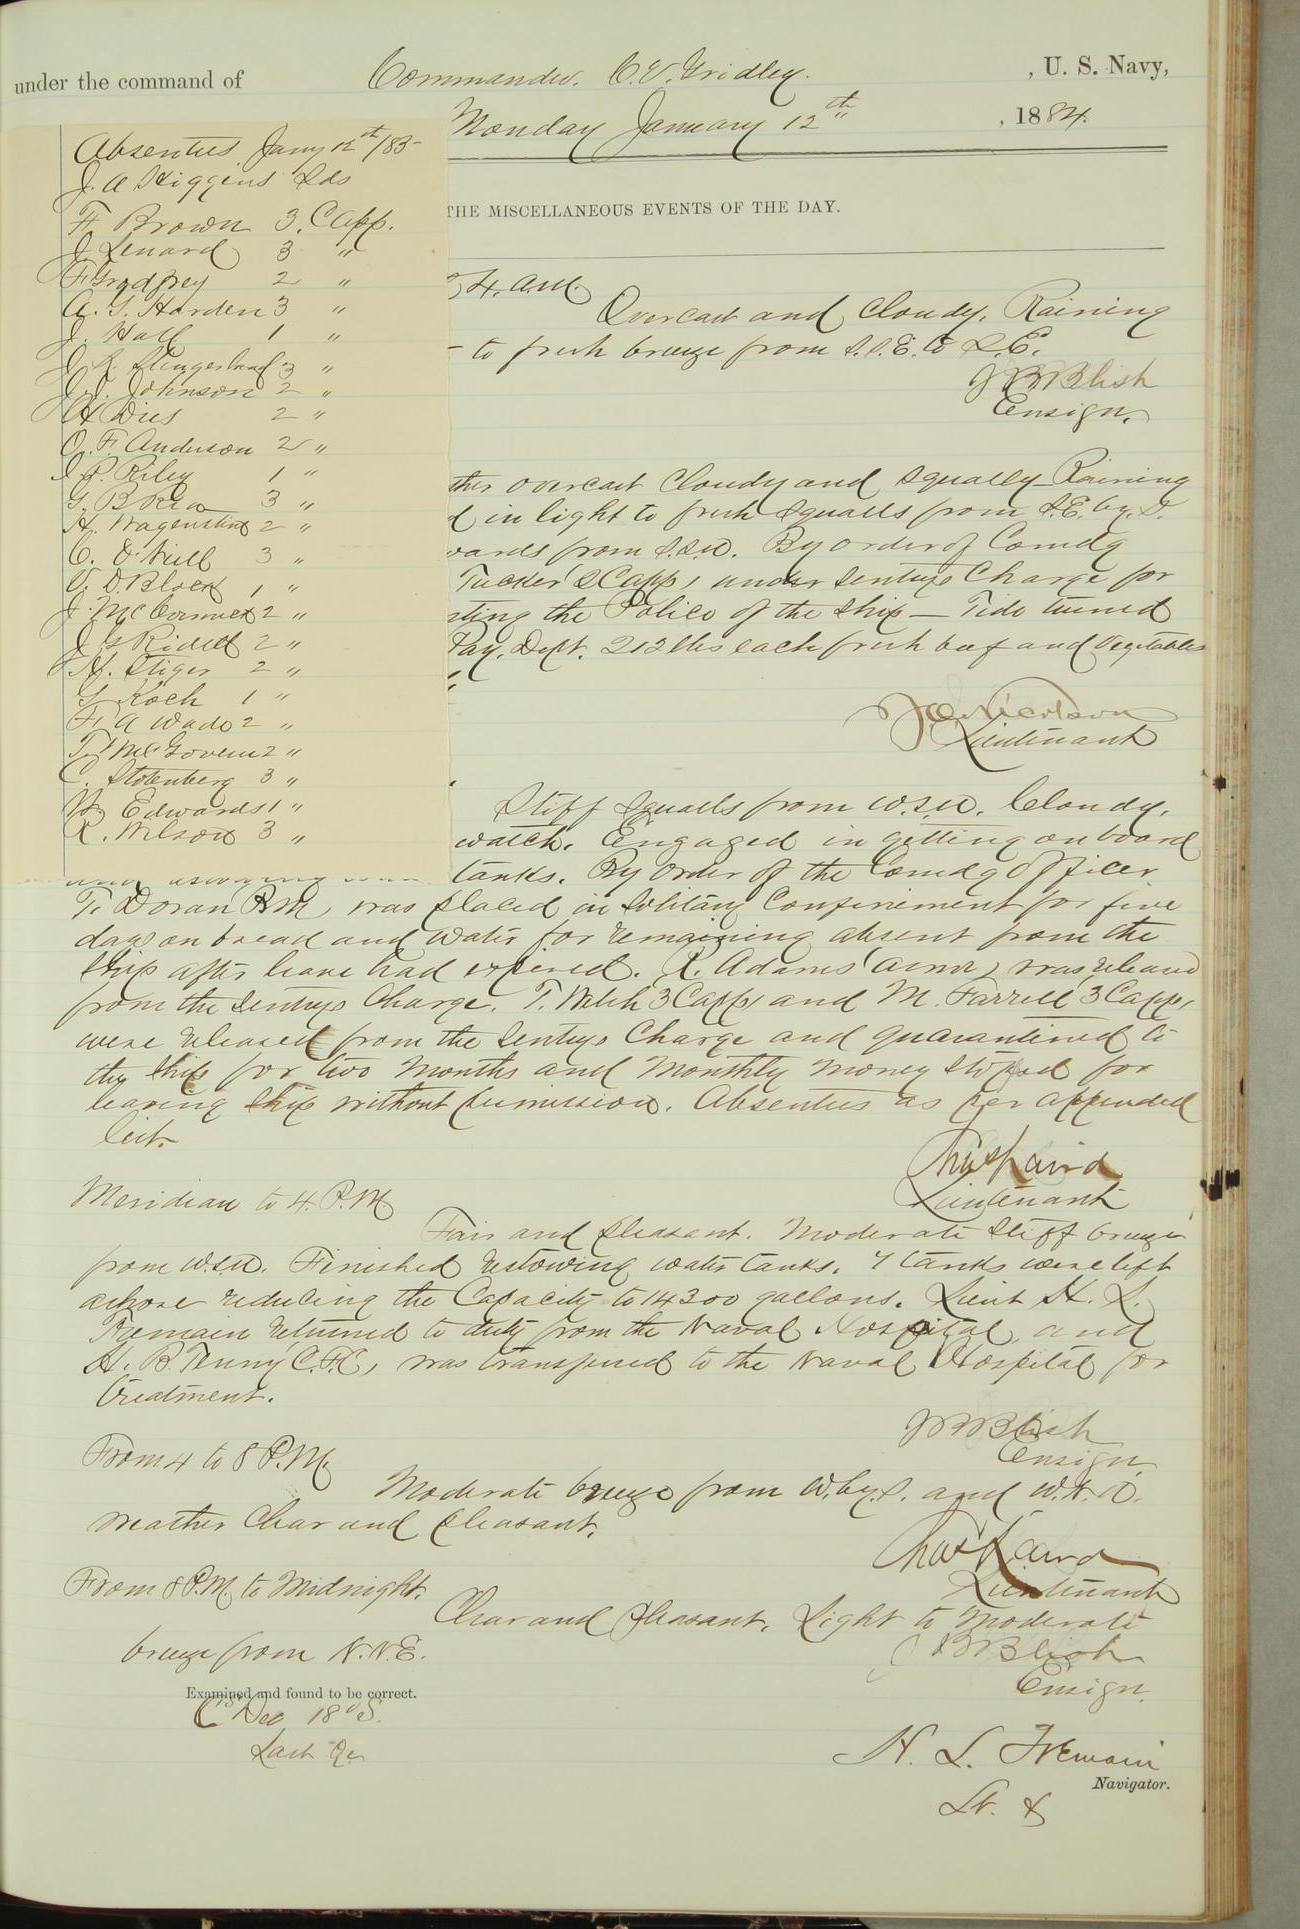 under the command of Commander. C. V. Gridley. , U. S. Navy,
Monday January 12th , 1884.
Absentees Jany 12th/85
J. A. Higgins Lds
F. Brown 3. C app.
J. Lenard 3 "
F. Godfrey 2 "
A. G. Harden 3 "
J. Hall 1 "
J. R. Slingerland 3 "
J. J. Johnson 2 "
H Dies 2 "
O. F. Anderson 2 "
J. P. Riley 1 "
G. B Rea 3 "
H. Wagenstine 2 "
C. O'Neill 3 "
V. D. Block 1 "
J. McCormick 2 "
J G Ridell 2 "
H. Stiger 2 "
G Koch 1 "
F. A Wade 2 "
T. McGovern 2 "
C. Stotenberg 3 "
W Edwards 1 "
R. Wilson 3 "
THE MISCELLANEOUS EVENTS OF THE DAY.
4. a.m.
Overcast and cloudy. Raining
to fresh breeze from S.S.E. to S.E.
J B Blish
Ensign.
ther overcast cloudy and squally Raining
d in light to fresh squalls from S.E. by. S.
wards from S.S.W. By order of Comdg
Tucker (2 C app) under sentrys charge for
ting the Police of the ship — Tide turned
Pay. Dept. 212 lbs each fresh beef and vegetables
Lieutenant
Stiff squalls from W.S.W. Cloudy.
watch. Engaged in getting on board
tanks. By order of the Comdg Officer
T. Doran (P.M) was placed in solitary confinement for five
days on bread and water for remaining absent from the
ship after leave had expired. R. Adams was released
from the sentrys charge. T. Welch 3 C app, and M. Farrell 3 C app,
were released from the sentrys charge and quarantined to
the ship for two months and monthly money stopped for
leaving ship without permission. Absentees as per appended
list.
Chas Laird
Lieutenant
Meridian to 4. P.M
Fair and pleasant. Moderate stiff breeze
from W.S.W. Finished restowing water tanks. 7 tanks were left
ashore reducing the capacity to 14300 gallons. Lieut H. L.
Tremain returned to duty from the Naval Hospital and
H. B. Tenny C.F.C, was transferred to the Naval Hospital for
treatment.
J B Blish
Ensign
From 4 to 8 P.M.
Moderate breeze from W. by. S. and W.N.W.
weather clear and pleasant.
Chas Laird
Lieutenant
From 8 P.M. to Midnight.
Clear and pleasant. Light to moderate
breeze from N.N.E.
J B Blish
Ensign.
Examined and found to be correct.
H. L. Tremain
Navigator.